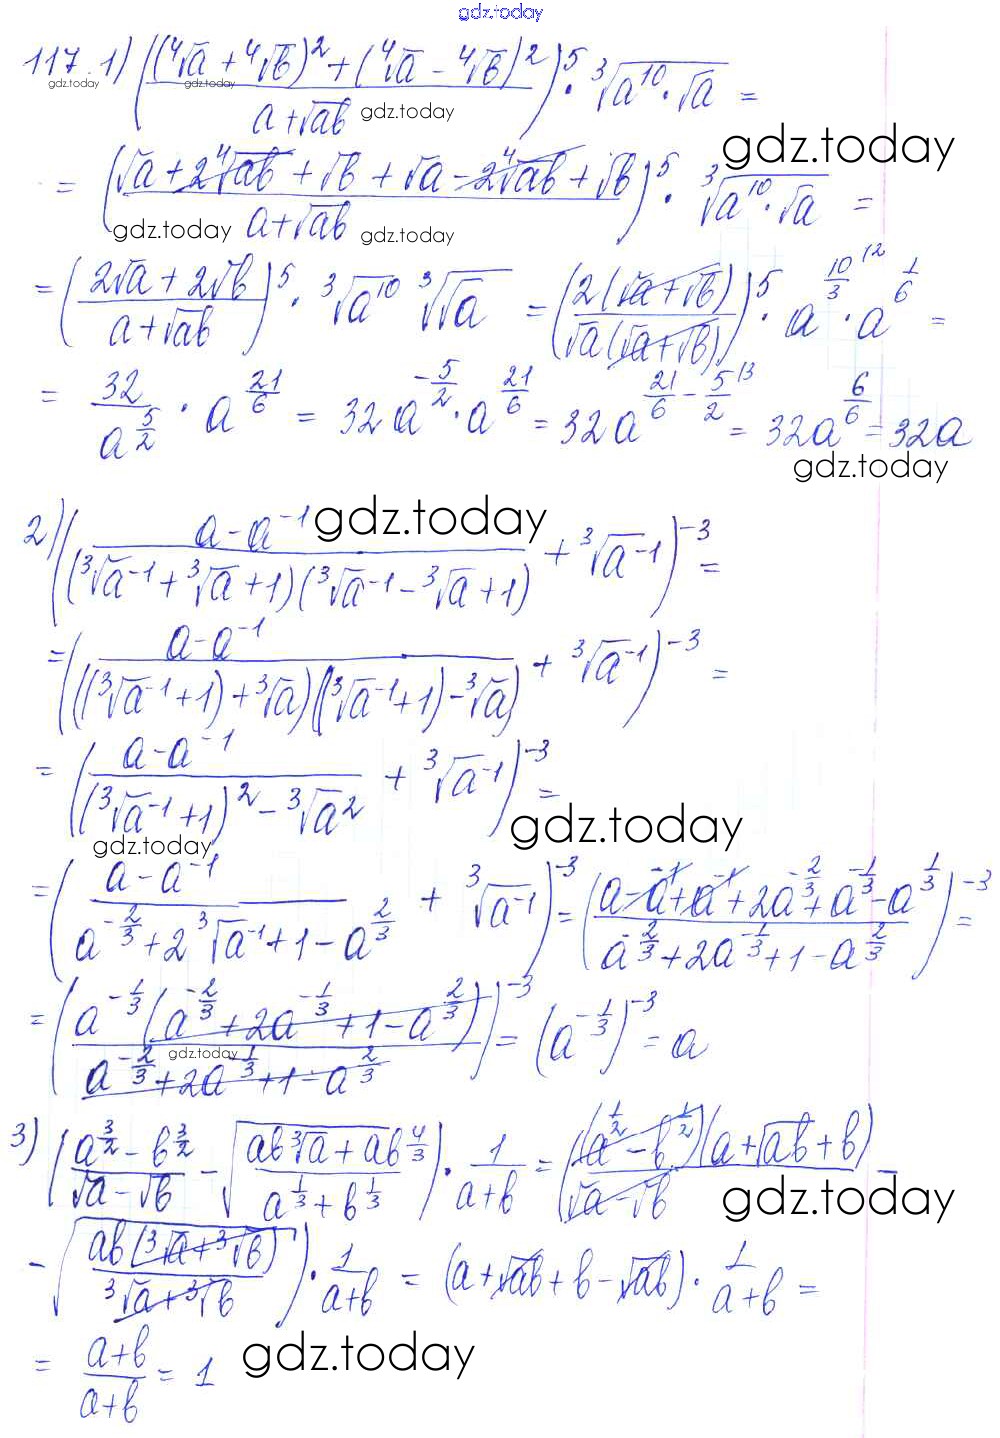 gdz.today
117. 1) (((⁴√a + ⁴√b)² + (⁴√a − ⁴√b)²)/(a + √ab))⁵ · ³√(a¹⁰ · √a) =
gdz.today gdz.today gdz.today
gdz.today
= ((√a + 2⁴√ab + √b + √a − 2⁴√ab + √b)/(a + √ab))⁵ · ³√(a¹⁰ · √a) =
gdz.today gdz.today
= ((2√a + 2√b)/(a + √ab))⁵ · ³√a¹⁰ ³√√a = (2(√a + √b)/(√a(√a + √b)))⁵ · a^(10/3)^\2 · a^(1/6) =
= 32/a^(5/2) · a^(21/6) = 32a^(−5/2) · a^(21/6) = 32a^(21/6 − 5/2^\3) = 32a^(6/6) = 32a
gdz.today
2) ((a − a⁻¹)/((³√a⁻¹ + ³√a + 1)(³√a⁻¹ − ³√a + 1)) + ³√a⁻¹)⁻³ =
gdz.today
= ((a − a⁻¹)/(((³√a⁻¹ + 1) + ³√a)((³√a⁻¹ + 1) − ³√a)) + ³√a⁻¹)⁻³ =
= ((a − a⁻¹)/((³√a⁻¹ + 1)² − ³√a²) + ³√a⁻¹)⁻³ =
gdz.today gdz.today
= ((a − a⁻¹)/(a^(−2/3) + 2³√a⁻¹ + 1 − a^(2/3)) + ³√a⁻¹)⁻³ = ((a − a⁻¹ + a⁻¹ + 2a^(−2/3) + a^(−1/3) − a^(1/3))/(a^(−2/3) + 2a^(−1/3) + 1 − a^(2/3)))⁻³ =
= (a^(−1/3)(a^(−2/3) + 2a^(−1/3) + 1 − a^(2/3))/(a^(−2/3) + 2a^(−1/3) + 1 − a^(2/3)))⁻³ = (a^(−1/3))⁻³ = a
gdz.today
3) ((a^(3/2) − b^(3/2))/(√a − √b) − √((ab³√a + ab^(4/3))/(a^(1/3) + b^(1/3)))) · 1/(a + b) = ((a^(1/2) − b^(1/2))(a + √ab + b)/(√a − √b) −
gdz.today
− √(ab(³√a + ³√b)/(³√a + ³√b))) · 1/(a + b) = (a + √ab + b − √ab) · 1/(a + b) =
= (a + b)/(a + b) = 1
gdz.today